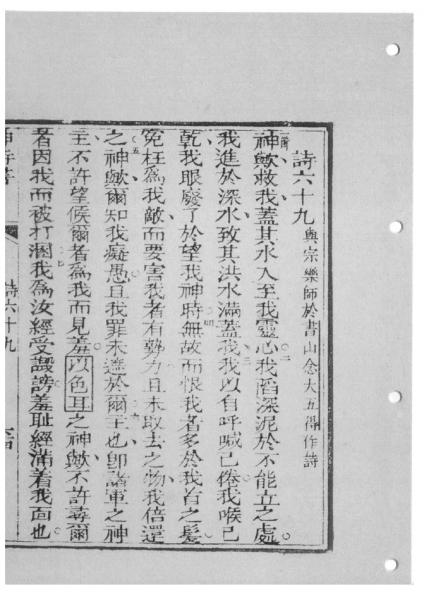 詩六十九 與宗樂師於書山念大五得作詩
神歟救我蓋其水入至我靈心我蹈深泥於不能立之處
我進於深水致其洪水滿蓋我我以自呼喊已倦我喉已
乾我眼廢了於望我神時無故而恨我者多於我首之髮
冤枉為我敵而要害我者有勢力且未取去之物我倍還
之神歟爾知我癡愚且我罪未逃於爾主也卽諸軍之神
主不許望候爾者為我而見羞以色耳之神歟不許尋爾
者因我而被打溷我為汝經受譭謗羞耻經滿着我面也
詩六十九